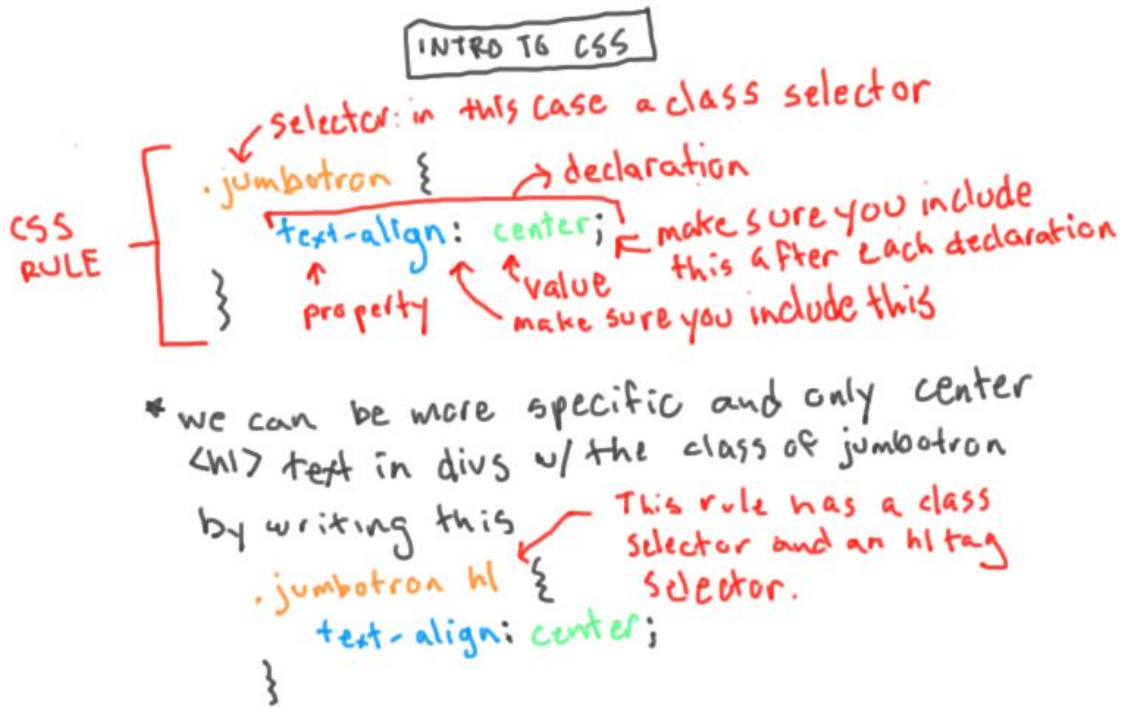 INTRO TO CSS
selector: in this case a class selector
.jumbotron {
declaration
CSS
RULE
text-align: center;
make sure you include
this after each declaration
}
property
value
make sure you include this
* we can be more specific and only center
<h1> text in divs w/ the class of jumbotron
by writing this
This rule has a class
selector and an h1 tag
selector.
.jumbotron h1 {
text-align: center;
}